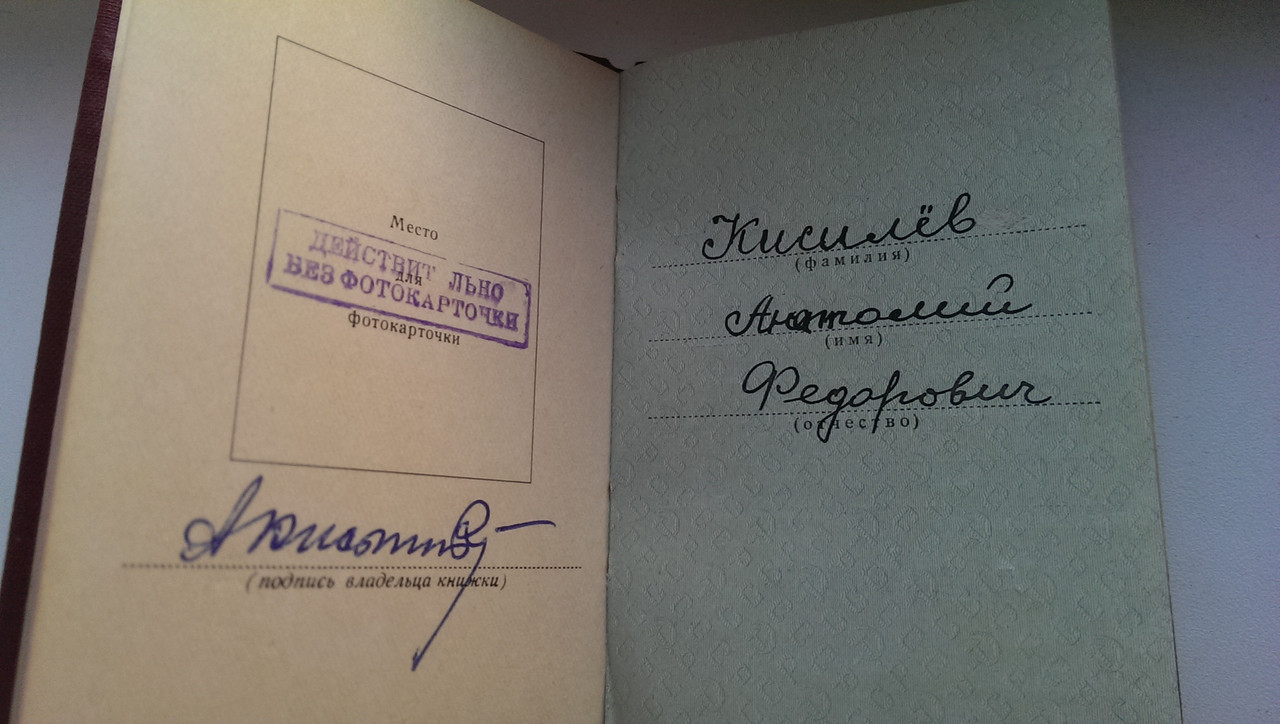 Место
для
фотокарточки
ДЕЙСТВИТ ЛЬНО
БЕЗ ФОТОКАРТОЧКИ
(подпись владельца книжки)
Кисилёв
(фамилия)
Анатолий
(имя)
Федорович
(отчество)